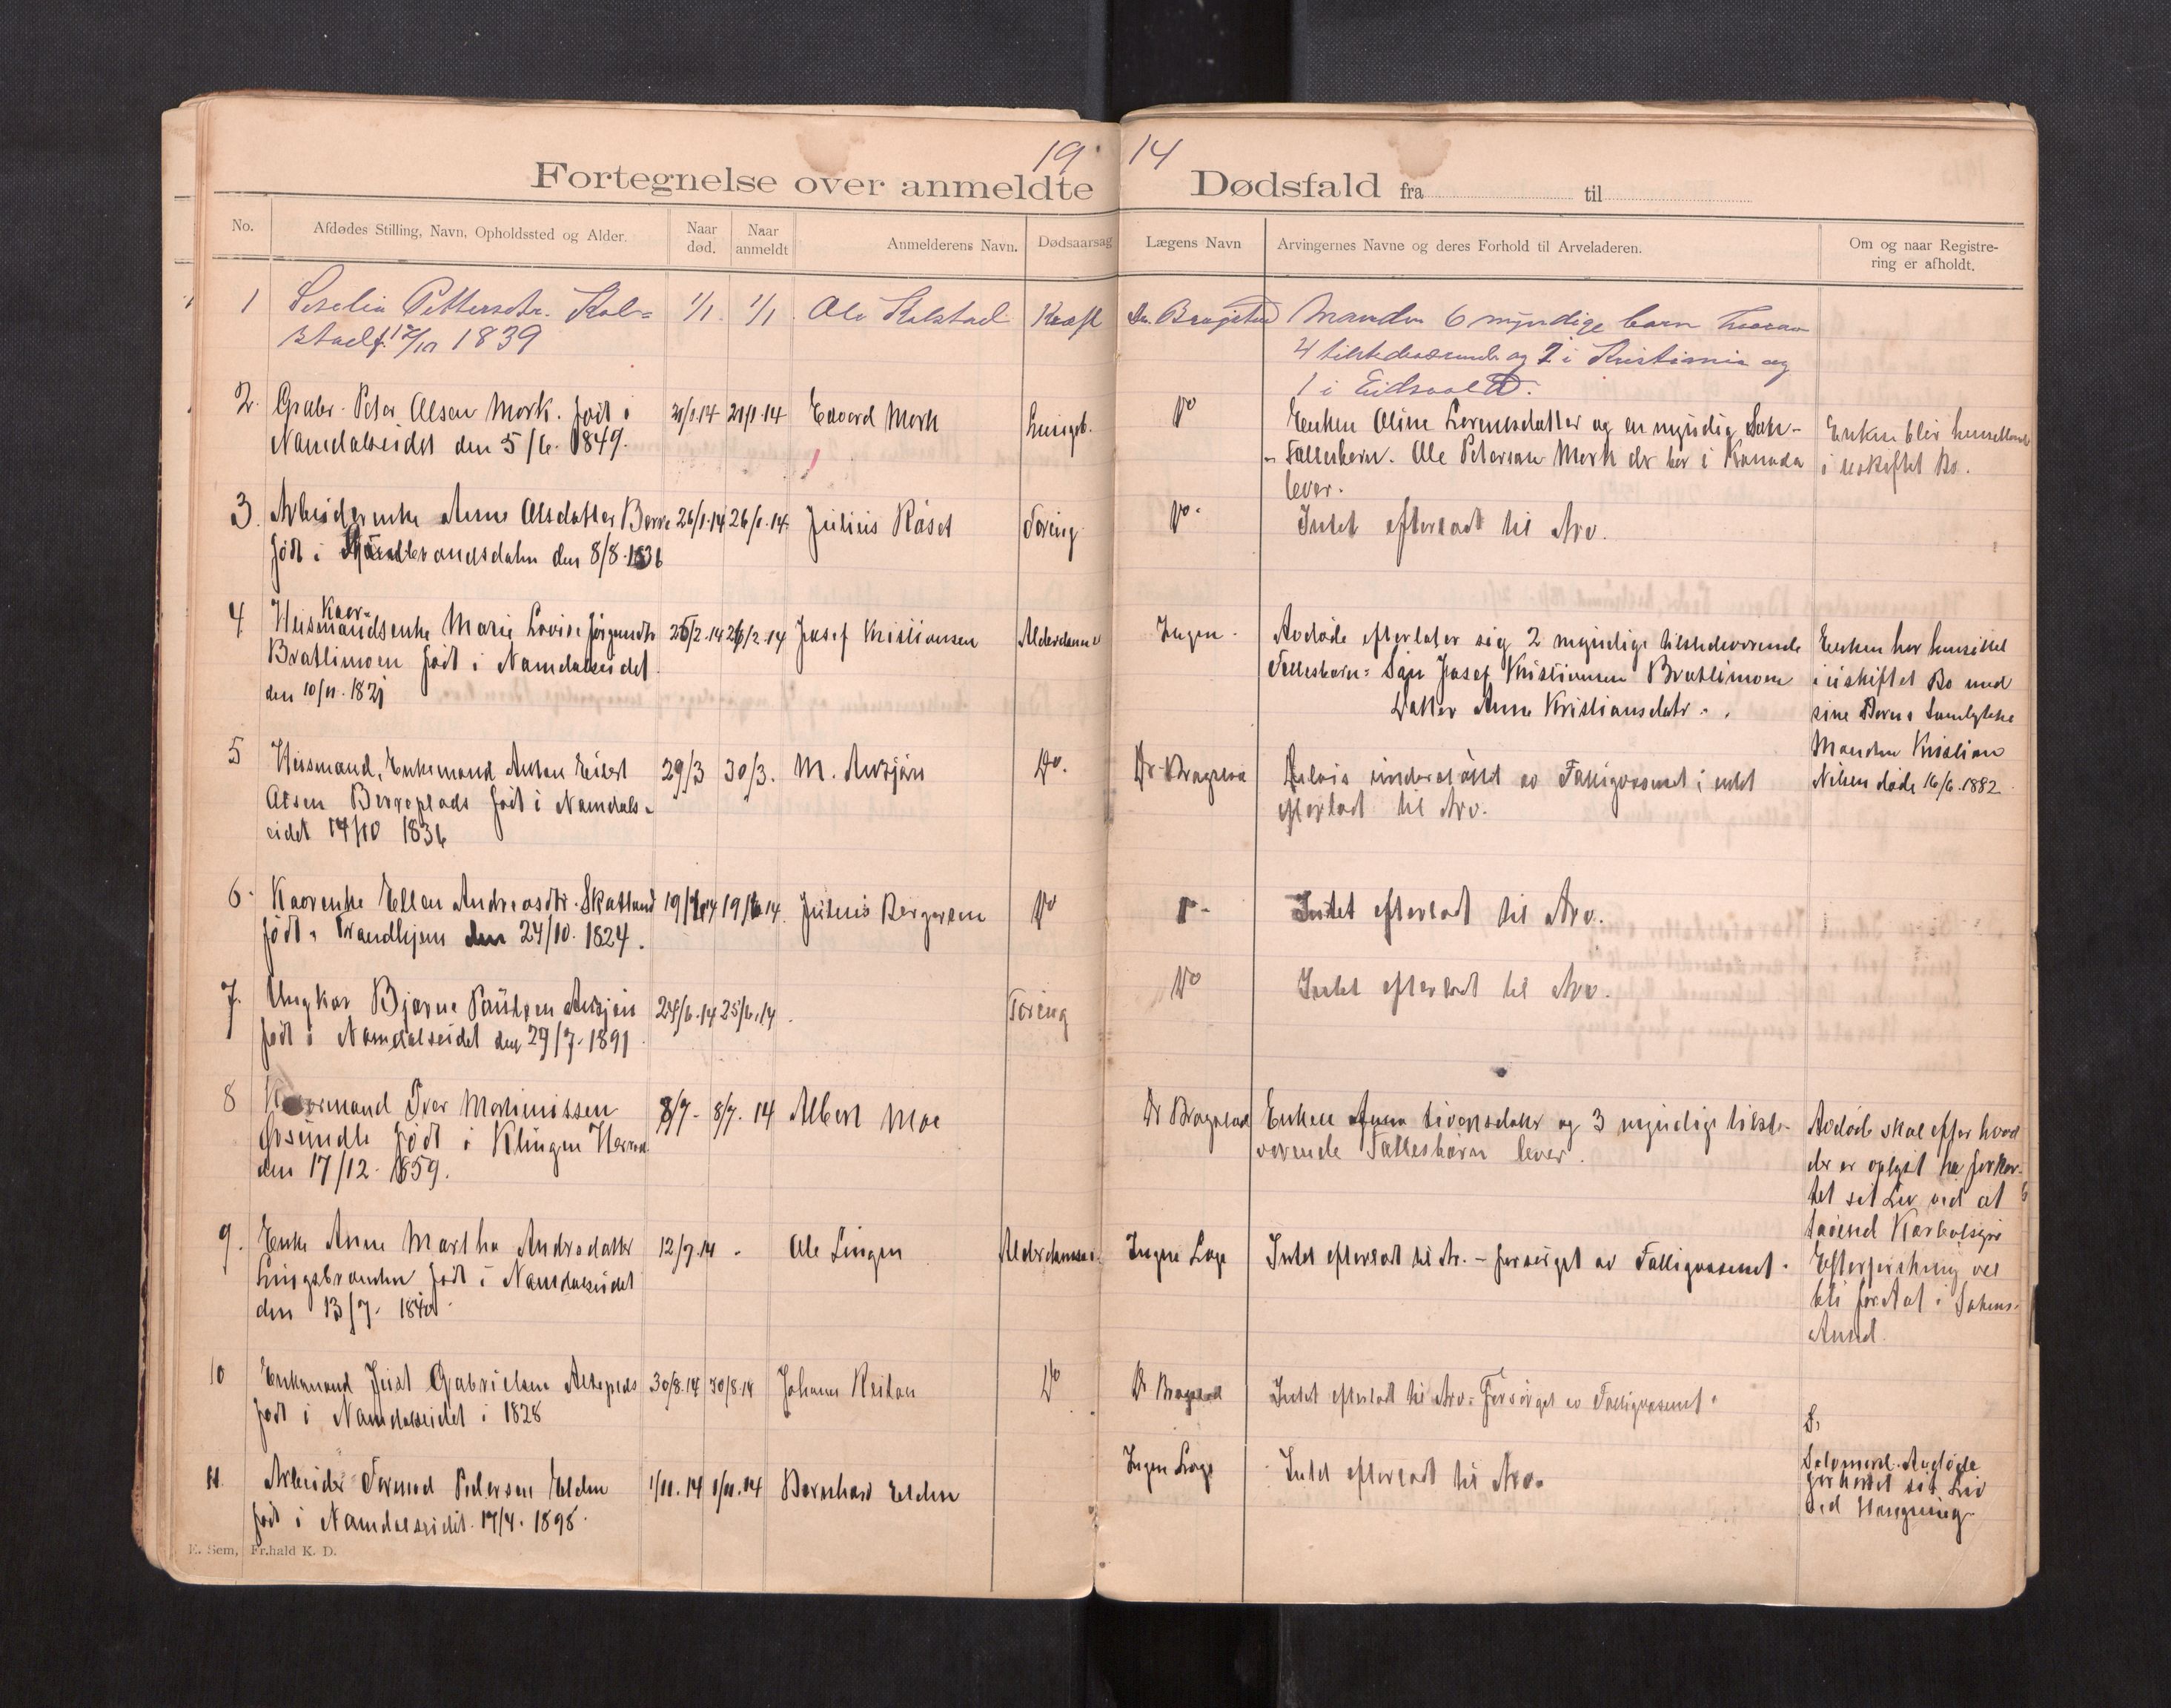 19 14
Fortegnelse over anmeldte Dødsfald fra til
No.
Afdødes Stilling, Navn, Opholdssted og Alder.
Naar død.
Naar anmeldt
Anmelderens Navn.
Dødsaarsag
Lægens Navn
Arvingernes Navne og deres Forhold til Arveladeren.
Om og naar Registre-
ring er afholdt.
1 Pettersdtr. Kol= 1/1 1/1 Ole Kolstad Kræft Dr. Manden 6 myndige barn hvorav
stad f. 1839
4 tilstedeværende og 1 i Kristiania og
1 i Eidsvold.
2. Peter Olsen Mork. født i Edvard Mork Do
Namdalseidet den 5/6. 1849.
Enken Oline Lorensdatter og en myndig Søn -
Fællesbarn. Ole Peterson Mork der bor i Kanada
lever.
Enken blir hensittende
i uskiftet Bo.
3. Arbeiderenke Anne Olsdatter Berre 26/1.14 26/1.14 Julius Råset Tæring Do. Intet efterladt til Arv.
født i den 8/8.1836
4 Kaar-
Husmandsenke Marie Lovise Jørgensdtr 26/2.14 26/2.14 Josef Kristiansen Alderdom Ingen.
Bratlimoen født i Namdalseidet
den 10/11. 1821
Avdøde efterlater sig 2 myndige tilstedeværende
Fællesbarn: Søn Josef Kristiansen Bratlimoen
Datter Anne Kristiansdatr.
Enken har hensittet
i uskiftet Bo med
sine Børns Samtykke
Manden Kristian
Nilsen døde 16/6.1882
5 Husmand, Enkemand Anton Eilert 29/3 30/3. M. Do.
Olsen Berreplads født i Namdals-
eidet 14/10 1836
Delvis understøttet av Fattigvæsenet; intet
efterladt til Arv.
6. Kaarenke Ellen Andreasdtr. Skatland Julius Bergersen Do Intet efterladt til Arv.
født i Trondhjem den 24/10. 1824.
7. Ungkar Bjarne Paulsen 24/6.14 25/6.14 Tæring Do Intet efterladt til Arv.
født i Namdalseidet den 29/7. 1891
8 Iver Martinussen 8/7- 8/7. 14 Albert Moe
født i Klingen Herred
den 17/12. 1859.
Enken Anna Siversdatr og 3 myndige tilste-
værende Fællesbarn lever.
Avdøde skal efter hvad
der er oplyst ha forkor-
tet sit Liv ved at
Karbolsyre
Efterforskning vel
bli foretat i Sakens
Anled.
9. Enke Anne Martha Andrsdatter 12/7.14 - Ole Lingen Ingen Læge Intet efterladt til Ar. - forsørget av Fattigvæsenet.
født i Namdalseidet
den 13/7. 1840
10 Enkemand Just Gabrielsen 30/8.14 30/8.14 Johann Reitan Do Intet efterladt til Arv. Forsørget av Fattigvæsenet.
født i Namdalseidet i 1828
11. Arbeider Tormod Pedersen Elden 1/11.14 1/11.14 Bernhard Elden Ingen Læge Intet efterladt til Arv.
født i Namdalseidet. 17/4. 1898.
Selvmord. Avdøde
forkortet sit Liv
ved Hængning.
E. Sem, Fr.hald K. D.